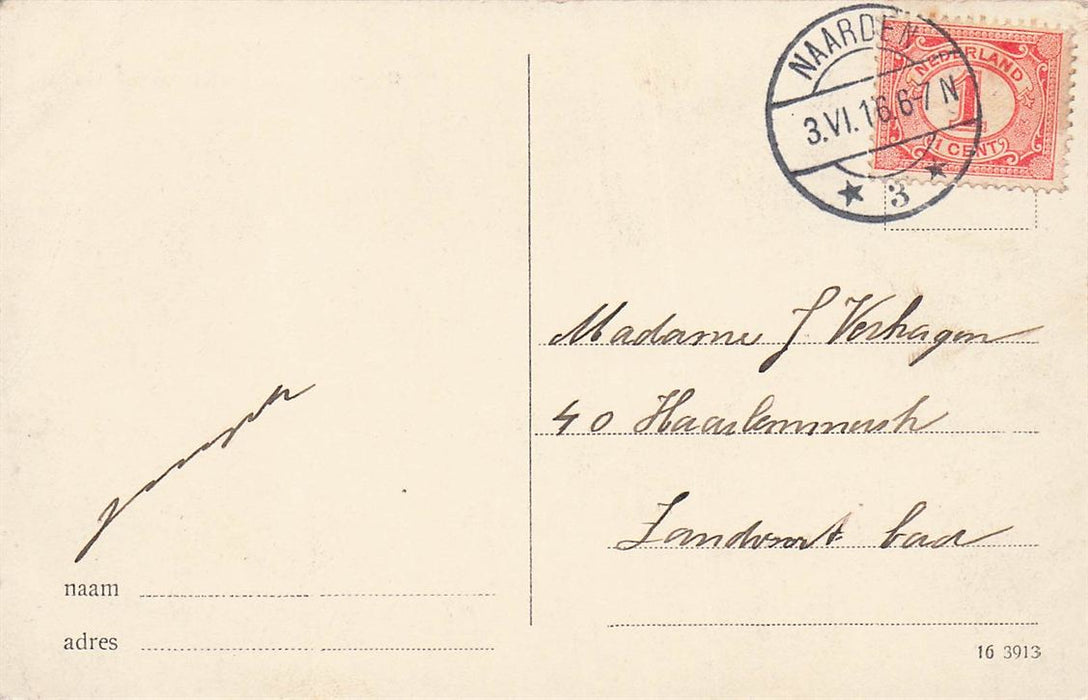 NAARDEN
3.VI.16.6-7 N
3
NEDERLAND
1
1 CENT
Madame J Verhagen
40 Haarlemmerstr
Zandvoort bad
naam
adres
16 3913